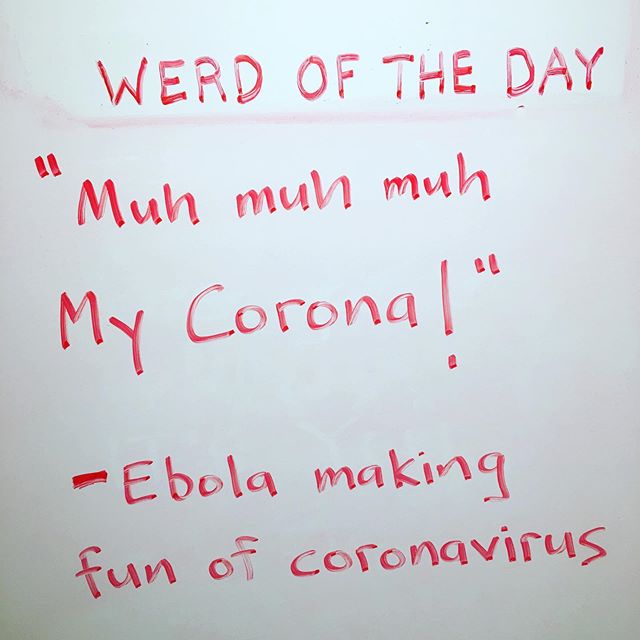 WERD OF THE DAY
"Muh muh muh
My Corona!"
- Ebola making
fun of coronavirus